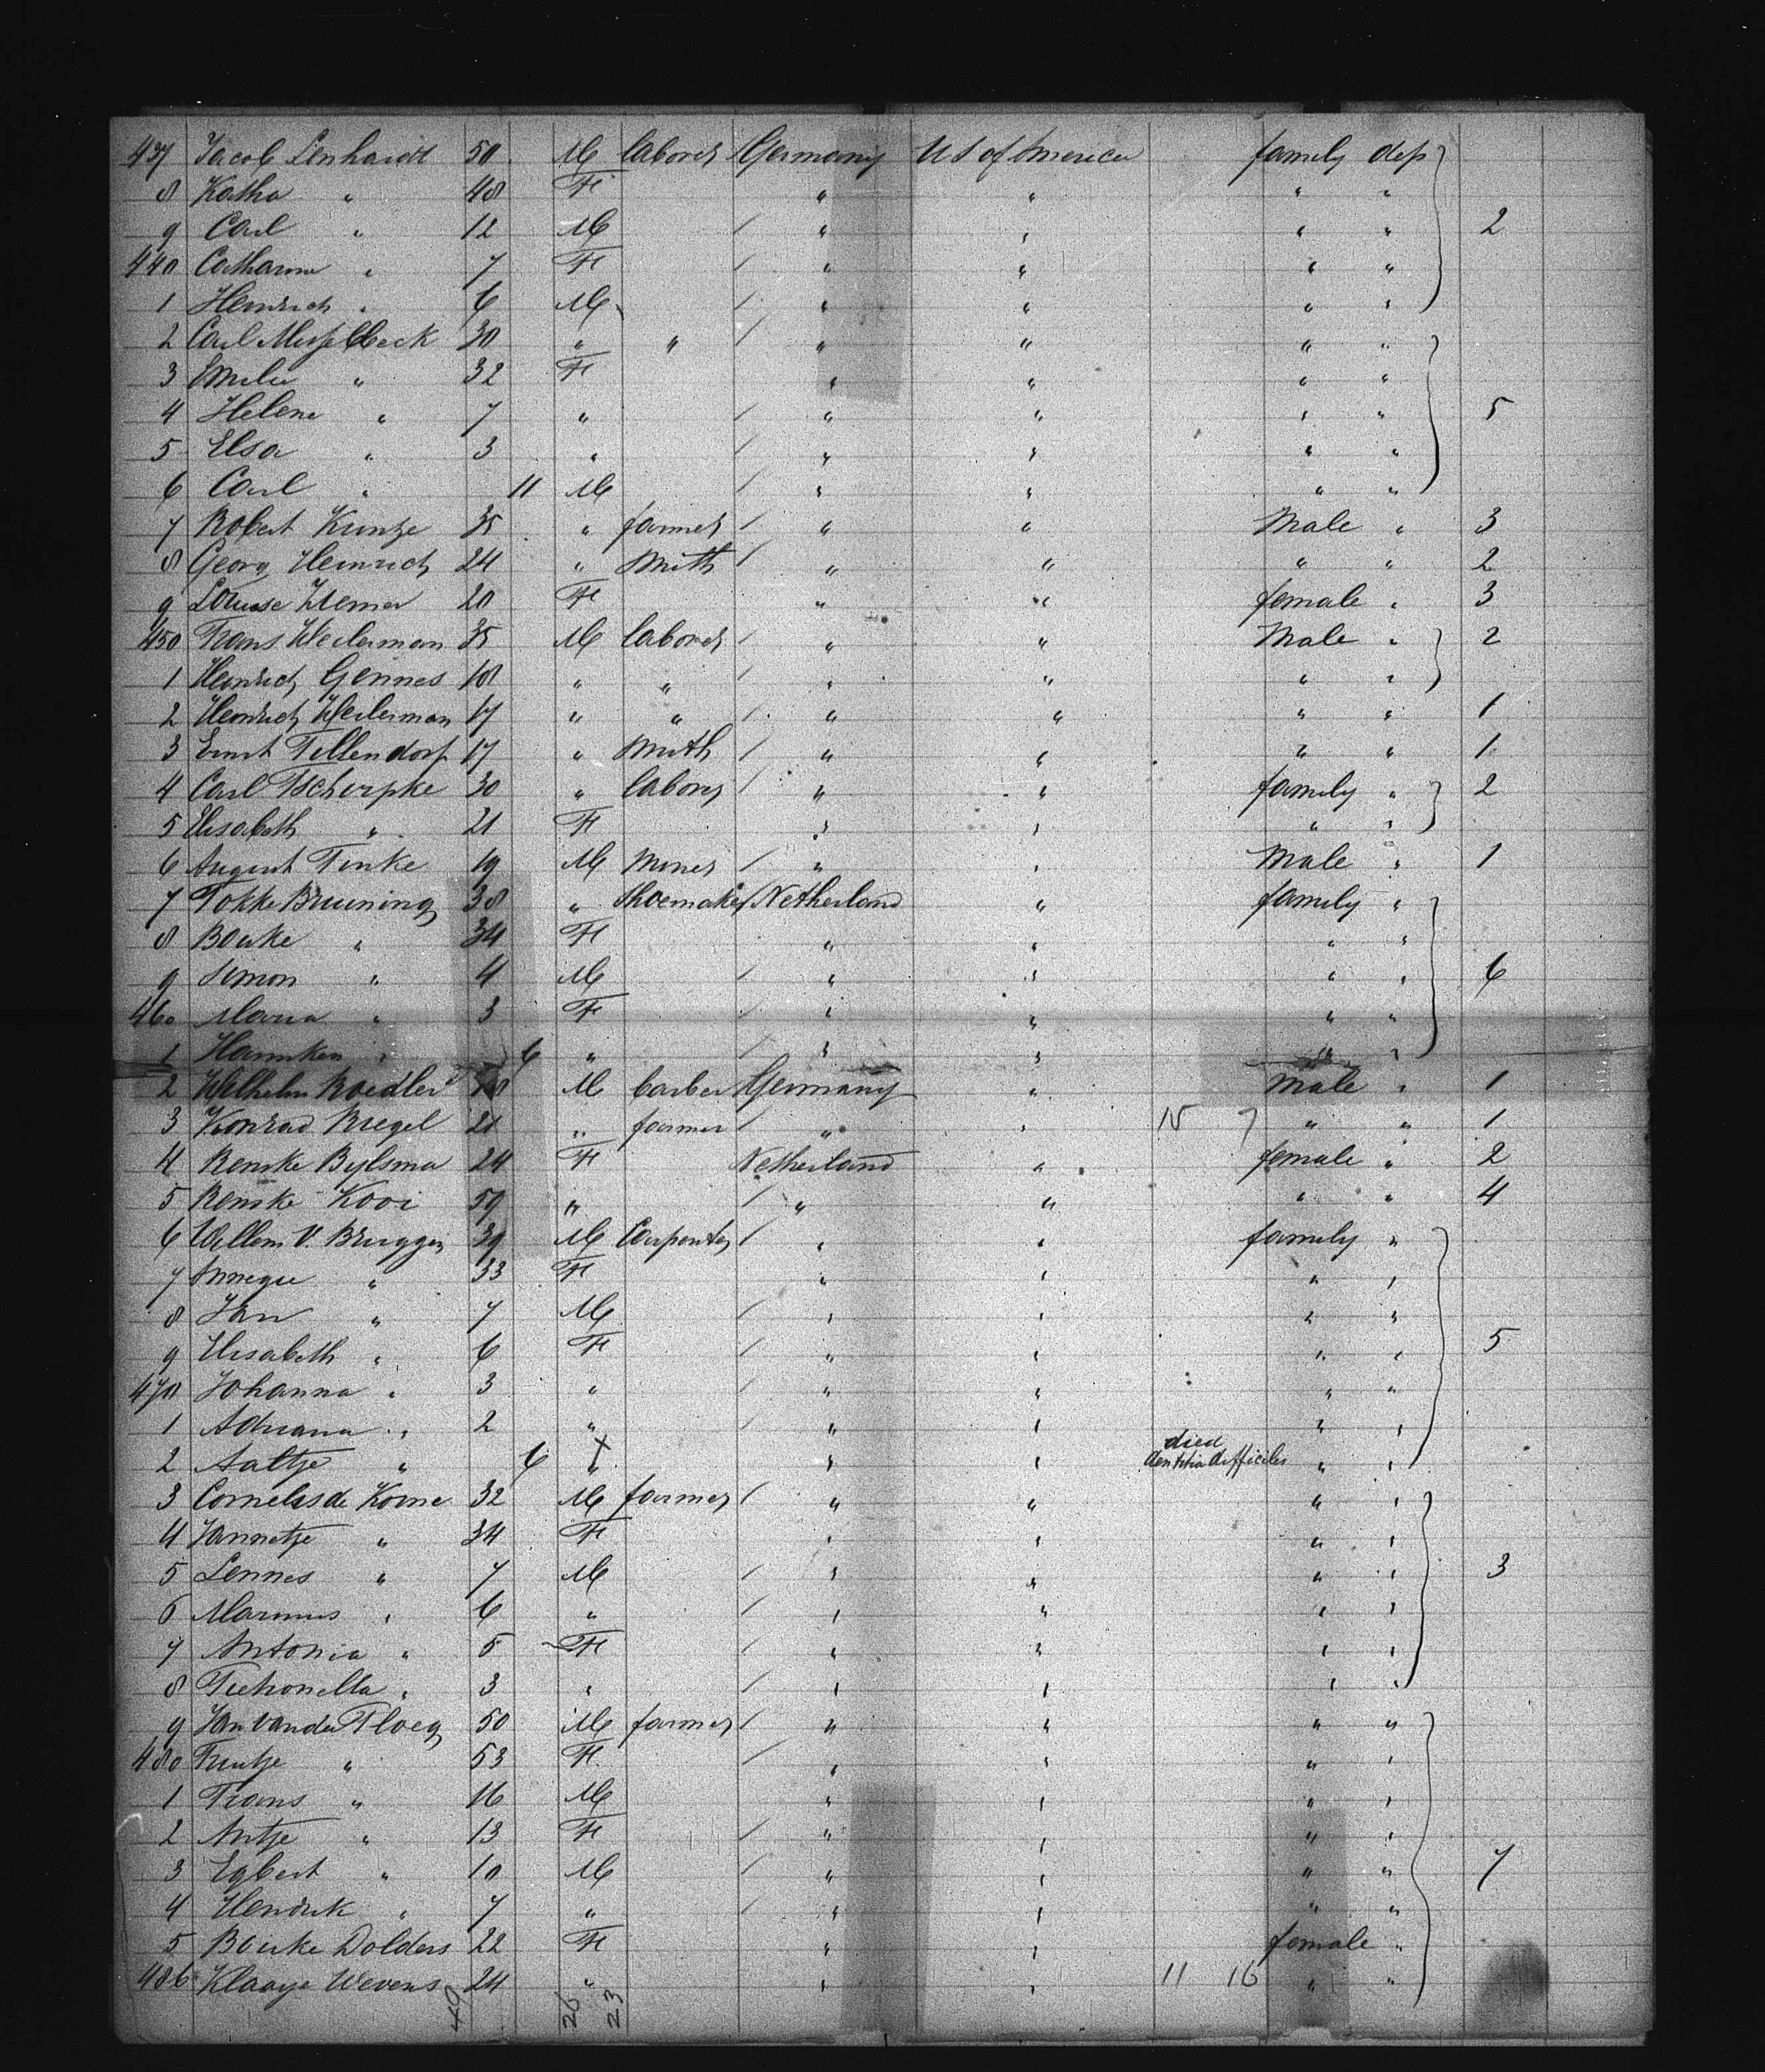 437 Jacob Lenhardt 50 M laborer Germany U S of America family dep
8 Katha " 48 F " " " "
9 Carl " 12 M " " " " 2
440 Catharina " 7 F " " " "
1 Heinrich " 6 M " " " "
2 Carl 30 " " " " " "
3 Emilie " 32 F " " " "
4 Helene " 7 " " " " " 5
5 Elsa " 3 " " " " "
6 Carl " 11 M " " " "
7 Robert Kunze 35 " farmer " " Male " 3
8 Georg Heinrich 24 " smith " " " " 2
9 Louise 20 F " " female " 3
450 Frans Weilerman 35 M laborer " " Male " 2
1 Heinrich Gennes 18 " " " " " "
2 Heinrich Weilerman 17 " " " " " " 1
3 Ernst Fellendorf 17 " smith " " " " 1
4 Carl 30 " laborer " " family " 2
5 Elisabeth " 21 F " " " "
6 August Finke 19 M miner " " Male " 1
7 Fokke Bruining 38 " shoemaker Netherland " family "
8 Bouke " 34 F " " " "
9 Simon " 4 M " " " " 6
460 Maria " 3 F " " " "
1 " 6 " " " " "
2 Wilhelm Roedler 18 M barber Germany " male " 1
3 Konrad Riegel 21 " farmer " " 15 7 " " 1
4 Renske Bylsma 24 F Netherland " female " 2
5 Renske Kooi 59 " " " " " 4
6 Willem V. Bruggen 39 M Carpenter " " family "
7 Annegie " 33 F " " " "
8 Jan " 7 M " " " "
9 Elisabeth " 6 F " " " " 5
470 Johanna " 3 " " " " "
1 Adriana " 2 " " " " "
2 Aaltje " 6 " " " died dentitia difficiles " "
3 Cornelis de Korne 32 M farmer " " " "
4 Jannetje " 34 F " " " "
5 Lennes " 7 M " " " " 3
6 Marinus " 6 " " " " "
7 Antonia " 5 F " " " "
8 " 3 " " " " "
9 Jan van der Ploeg 50 M farmer " " " "
480 Trintje " 53 F " " " "
1 Frans " 16 M " " " "
2 Antje " 13 F " " " "
3 Egbert " 10 M " " " " 7
4 Hendrik " 7 " " " " "
5 Bouke Dolders 22 F " " female "
486 Klaasje Wevers 24 " " " 11 16 " "
49 26 23